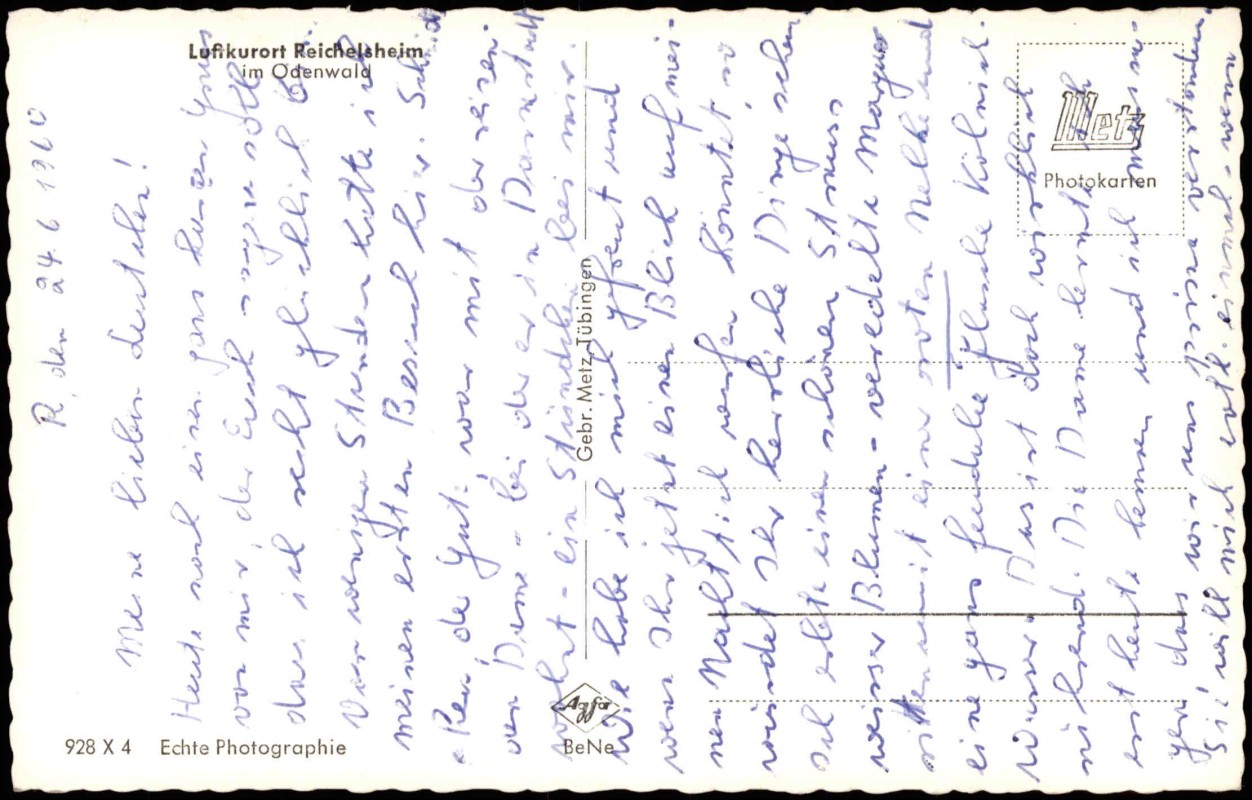 Luftkurort Reichelsheim
im Odenwald
R. den 24 6 1960
Meine lieben
Heute noch einen ganz kurzen Gruss
von mir, der Euch sagen soll
das ich recht glücklich bin.
Vor wenigen Stunden hatte ich
meinen ersten Besuch hier.
der Gute war mit der reizen-
den Dame - bei der er in Darmstadt
wohnt - ein Stündchen bei mir.
Wie habe ich mich gefreut und
wenn Ihr jetzt einen Blick auf mei-
nen Nachttisch werfen könntet, so
würdet Ihr herrliche Dinge sehen
Ich erhielt einen schönen Strauss
weisser Blumen - veredelte
mit einer roten Nelke und
eine ganz feudale Flasche Kölnisch
Wasser. Das ist doch wirklich
rührend. Die Dame lernte ich
erst heute kennen und ich muss sa-
gen das wir uns prima verstanden.
Sie will mich evtl. einmal - wenn
928 X 4 Echte Photographie
Agfa
BeNe
Gebr. Metz, Tübingen
Metz
Photokarten